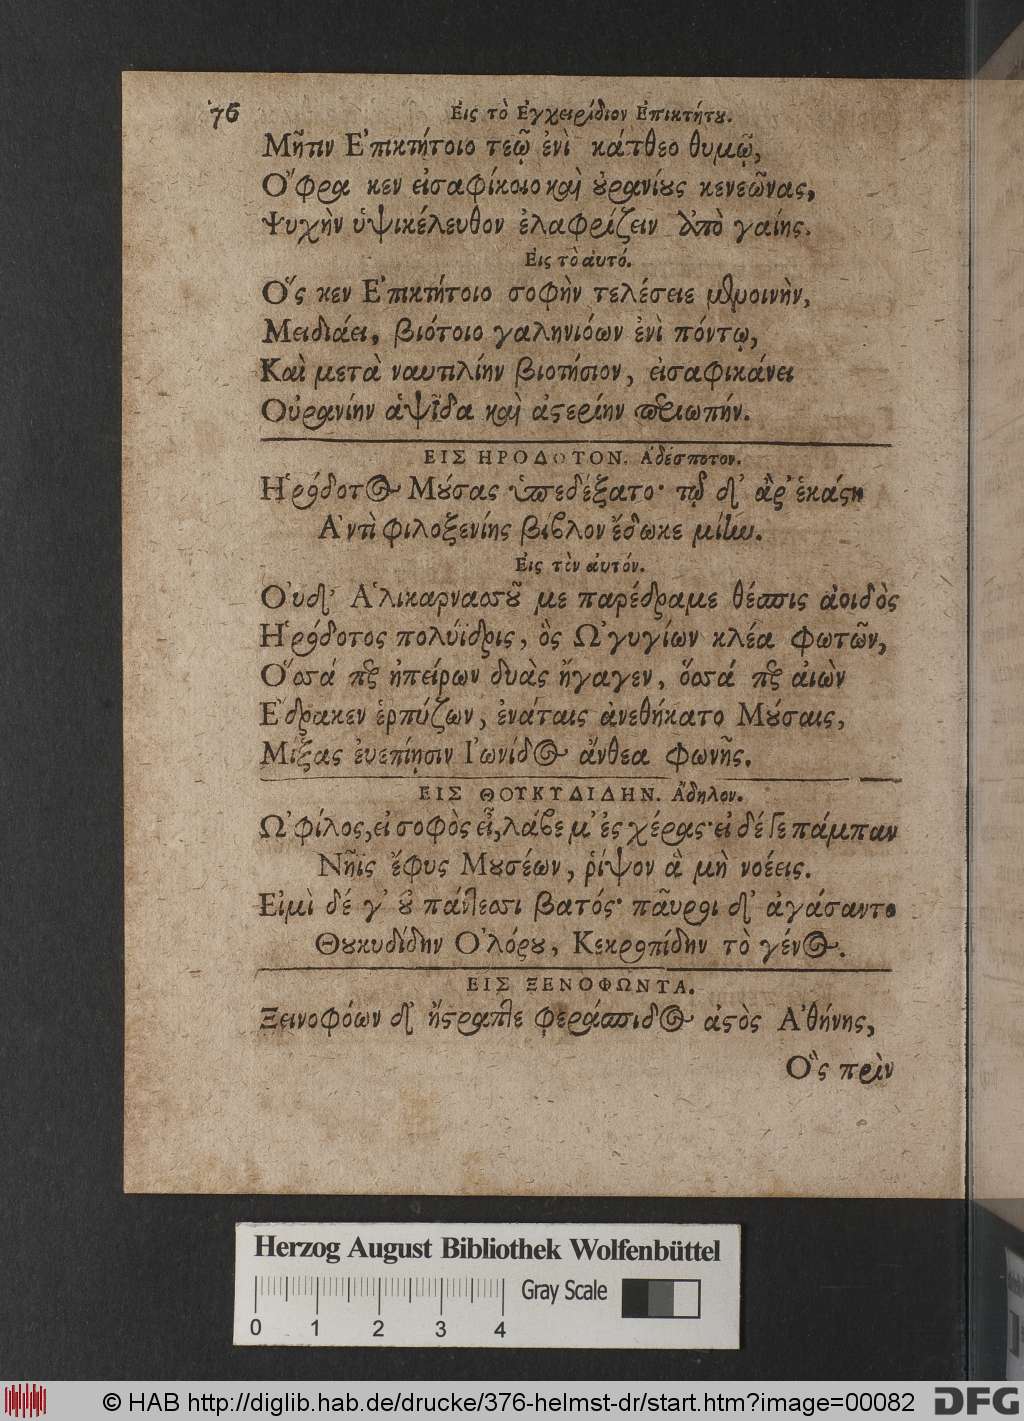 76
Εἰς τὸ Ἐγχειρίδιον Ἐπικτήτου.
Μῆτιν Ἐπικτήτοιο τεῷ ἐνὶ κάτθεο θυμῷ,
Ὄφρα κεν εἰσαφίκοιο καὶ οὐρανίους κενεῶνας,
Ψυχὴν ὑψικέλευθον ἐλαφρίζειν ἀπὸ γαίης.
Εἰς τὸ αὐτό.
Ὅς κεν Ἐπικτήτοιο σοφὴν τελέσειε μενοινὴν,
Μειδιάει, βιότοιο γαληνιόων ἐνὶ πόντῳ,
Καὶ μετὰ ναυτιλίην βιοτήσιον, εἰσαφικάνει
Οὐρανίην ἁψῖδα καὶ ἀστερίην περιωπήν.
ΕΙΣ ΗΡΟΔΟΤΟΝ. Ἀδέσποτον.
Ἡρόδοτος Μούσας ὑπεδέξατο· τῷ δ' ἂρ' ἑκάστη
Ἀντὶ φιλοξενίης βίβλον ἔδωκε μίαν.
Εἰς τὲν αὐτόν.
Οὐδ' Ἁλικαρνασοῦ με παρέδραμε θέσπις ἀοιδὸς
Ἡρόδοτος πολύϊδρις, ὃς Ὠγυγίων κλέα φωτῶν,
Ὅσσά περ ἠπείρων δυὰς ἤγαγεν, ὅσσά περ αἰὼν
Ἔδρακεν ἑρπύζων, ἐνάταις ἀνεθήκατο Μούσαις,
Μίξας ἐυεπίῃσιν Ἰωνίδος ἄνθεα φωνῆς.
ΕΙΣ ΘΟΥΚΥΔΙΔΗΝ. Ἄδηλον.
Ὦ φίλος, εἰ σοφὸς εἶ, λάβε μ' ἐς χέρας· εἰ δέ γε πάμπαν
Νῆϊς ἔφυς Μουσέων, ῥίψον ἃ μὴ νοέεις.
Εἰμὶ δέ γ' οὐ πάντεσσι βατός· παῦροι δ' ἀγάσαντο
Θουκυδίδην Ὀλόρου, Κεκροπίδην τὸ γένος.
ΕΙΣ ΞΕΝΟΦΩΝΤΑ.
Ξεινοφόων δ' ἤστραπτε φεράσπιδος ἀστὸς Ἀθήνης,
Ὃς πρὶν
Herzog August Bibliothek Wolfenbüttel
Gray Scale
0 1 2 3 4
© HAB http://diglib.hab.de/drucke/376-helmst-dr/start.htm?image=00082
DFG